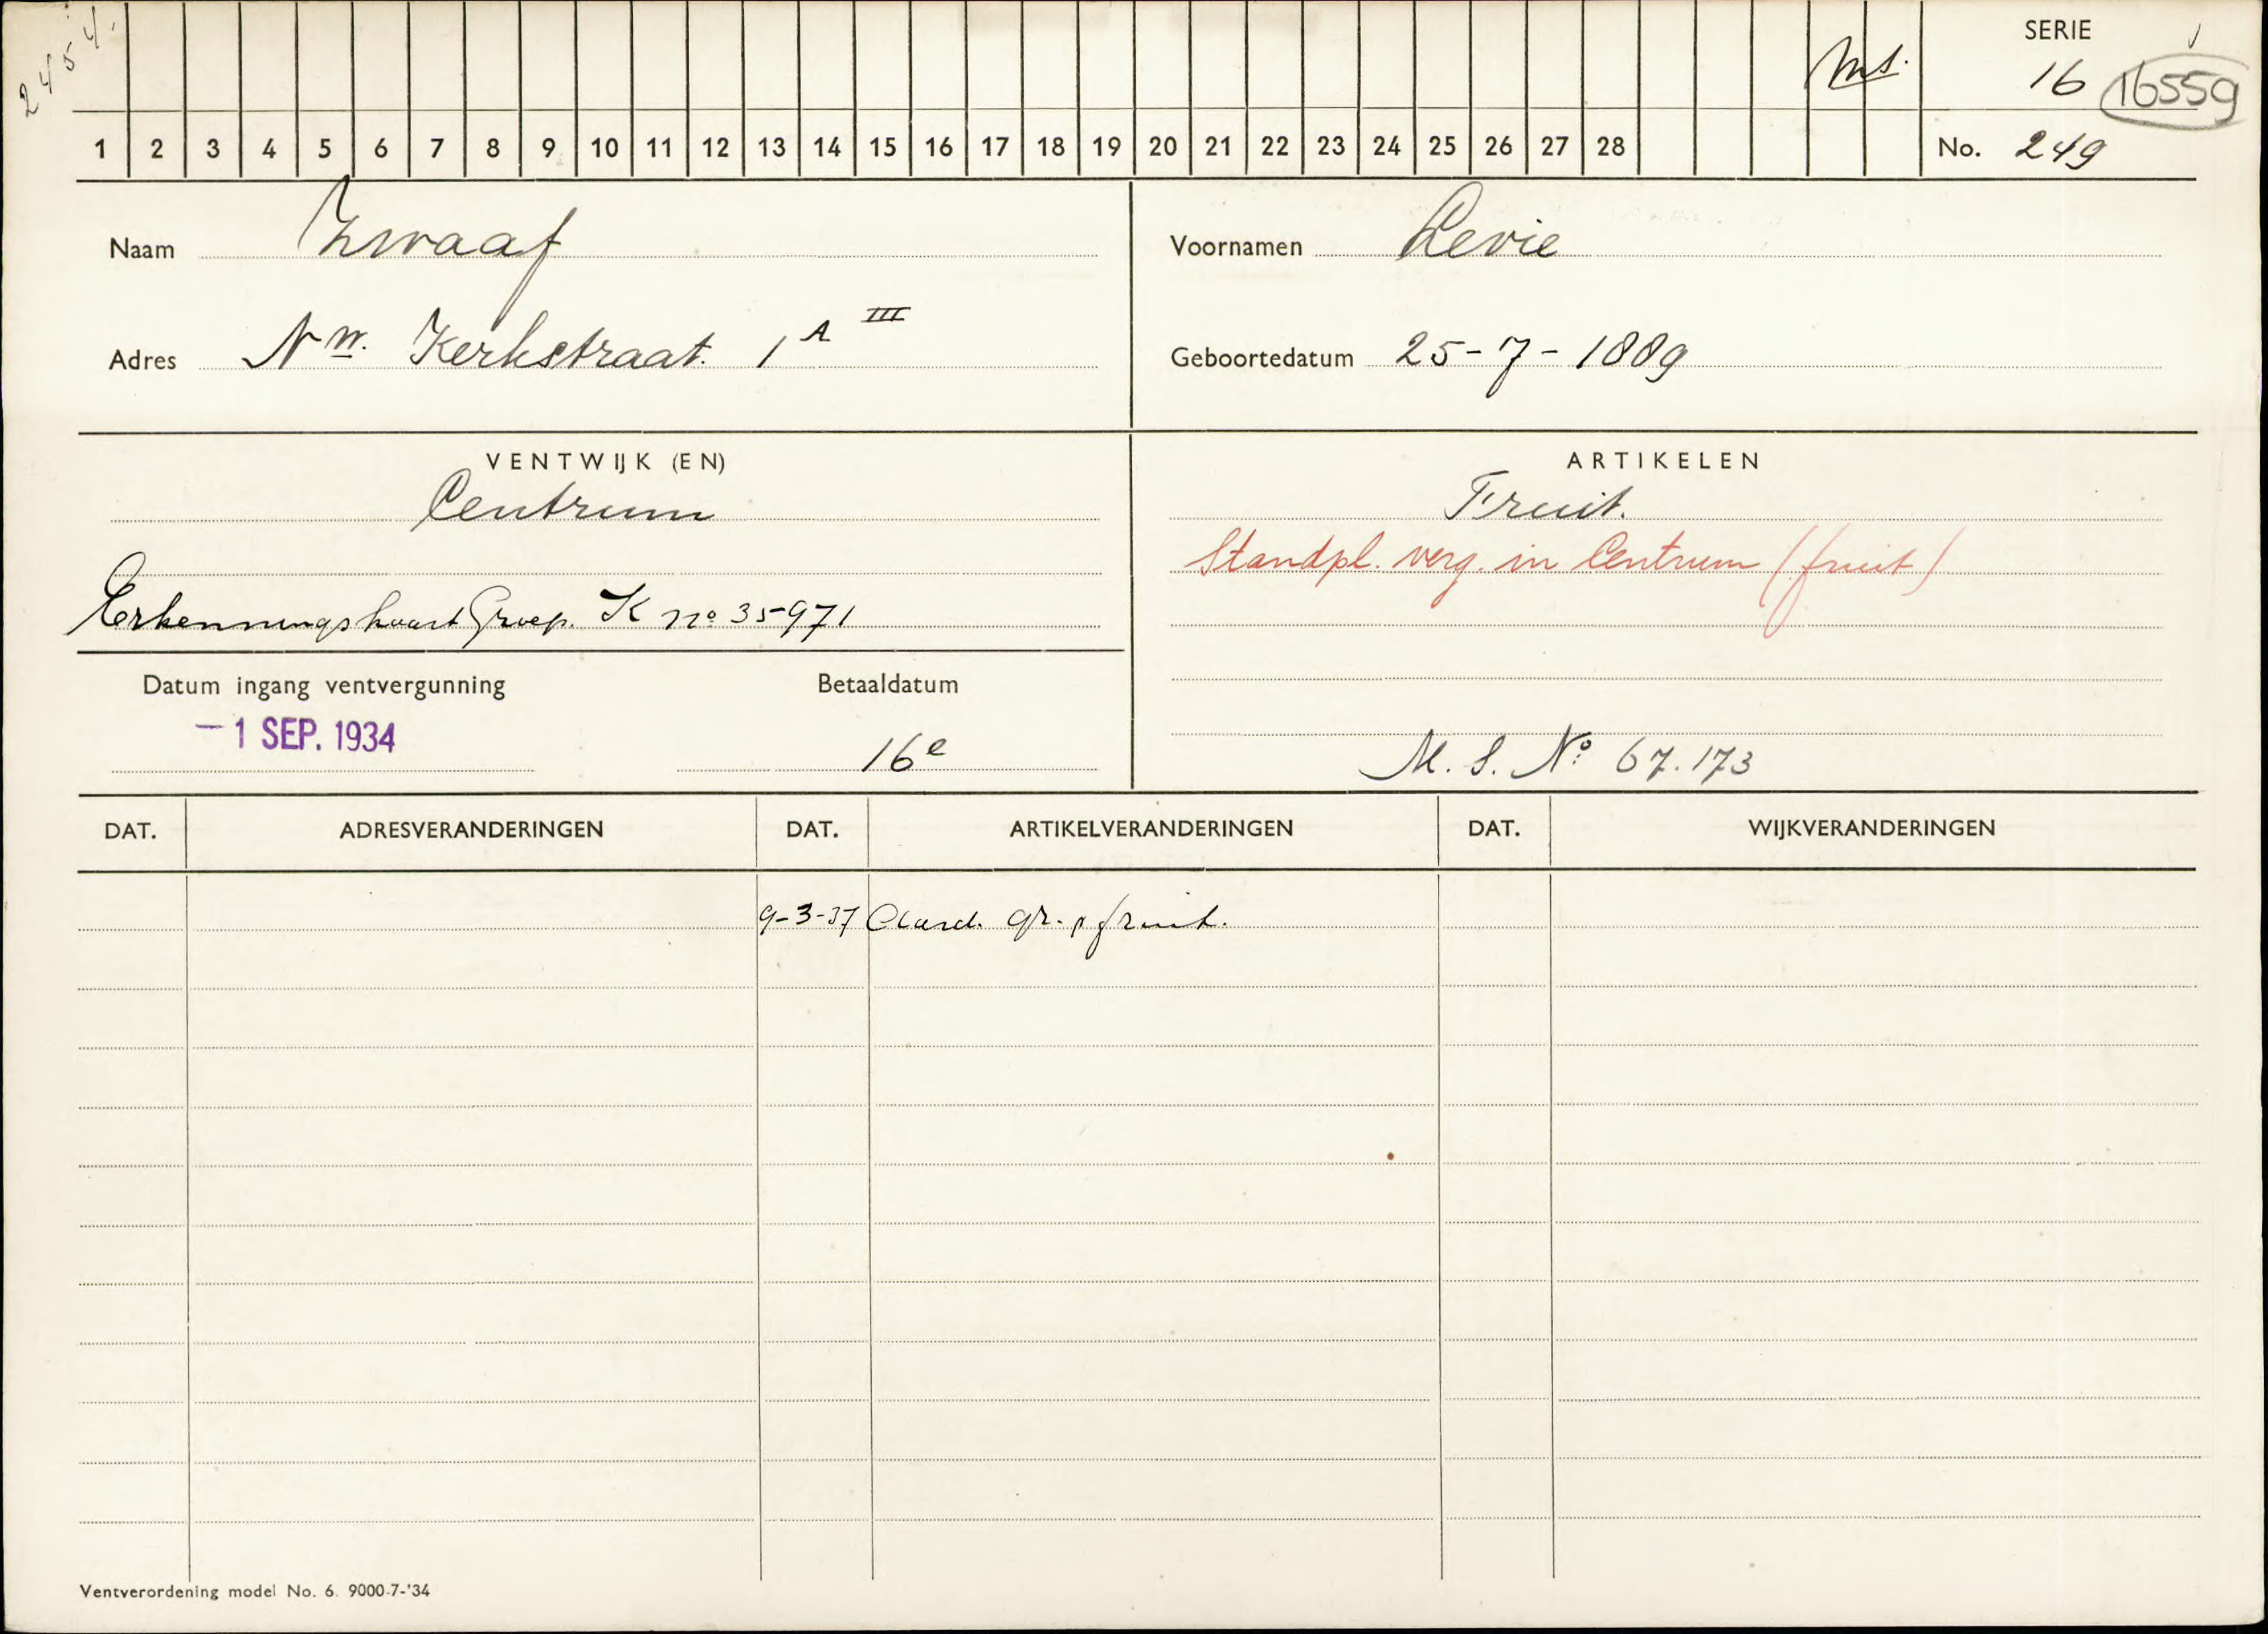 2454.
SERIE
Ms. 16 16559
1 2 3 4 5 6 7 8 9 10 11 12 13 14 15 16 17 18 19 20 21 22 23 24 25 26 27 28 No. 249
Naam Zwaaf
Voornamen Levie
Adres Nw. Kerkstraat. 1 A III
Geboortedatum 25-7-1889
VENTWIJK (EN)
Centrum
Erkenningskaart Groep. K no 35971
ARTIKELEN
Fruit.
Standpl. verg. in Centrum (fruit)
M. S. No 67.173
Datum ingang ventvergunning Betaaldatum
- 1 SEP. 1934 16e
DAT. ADRESVERANDERINGEN DAT. ARTIKELVERANDERINGEN DAT. WIJKVERANDERINGEN
9-3-37 Aard. gr. fruit.
Ventverordening model No. 6. 9000-7-'34